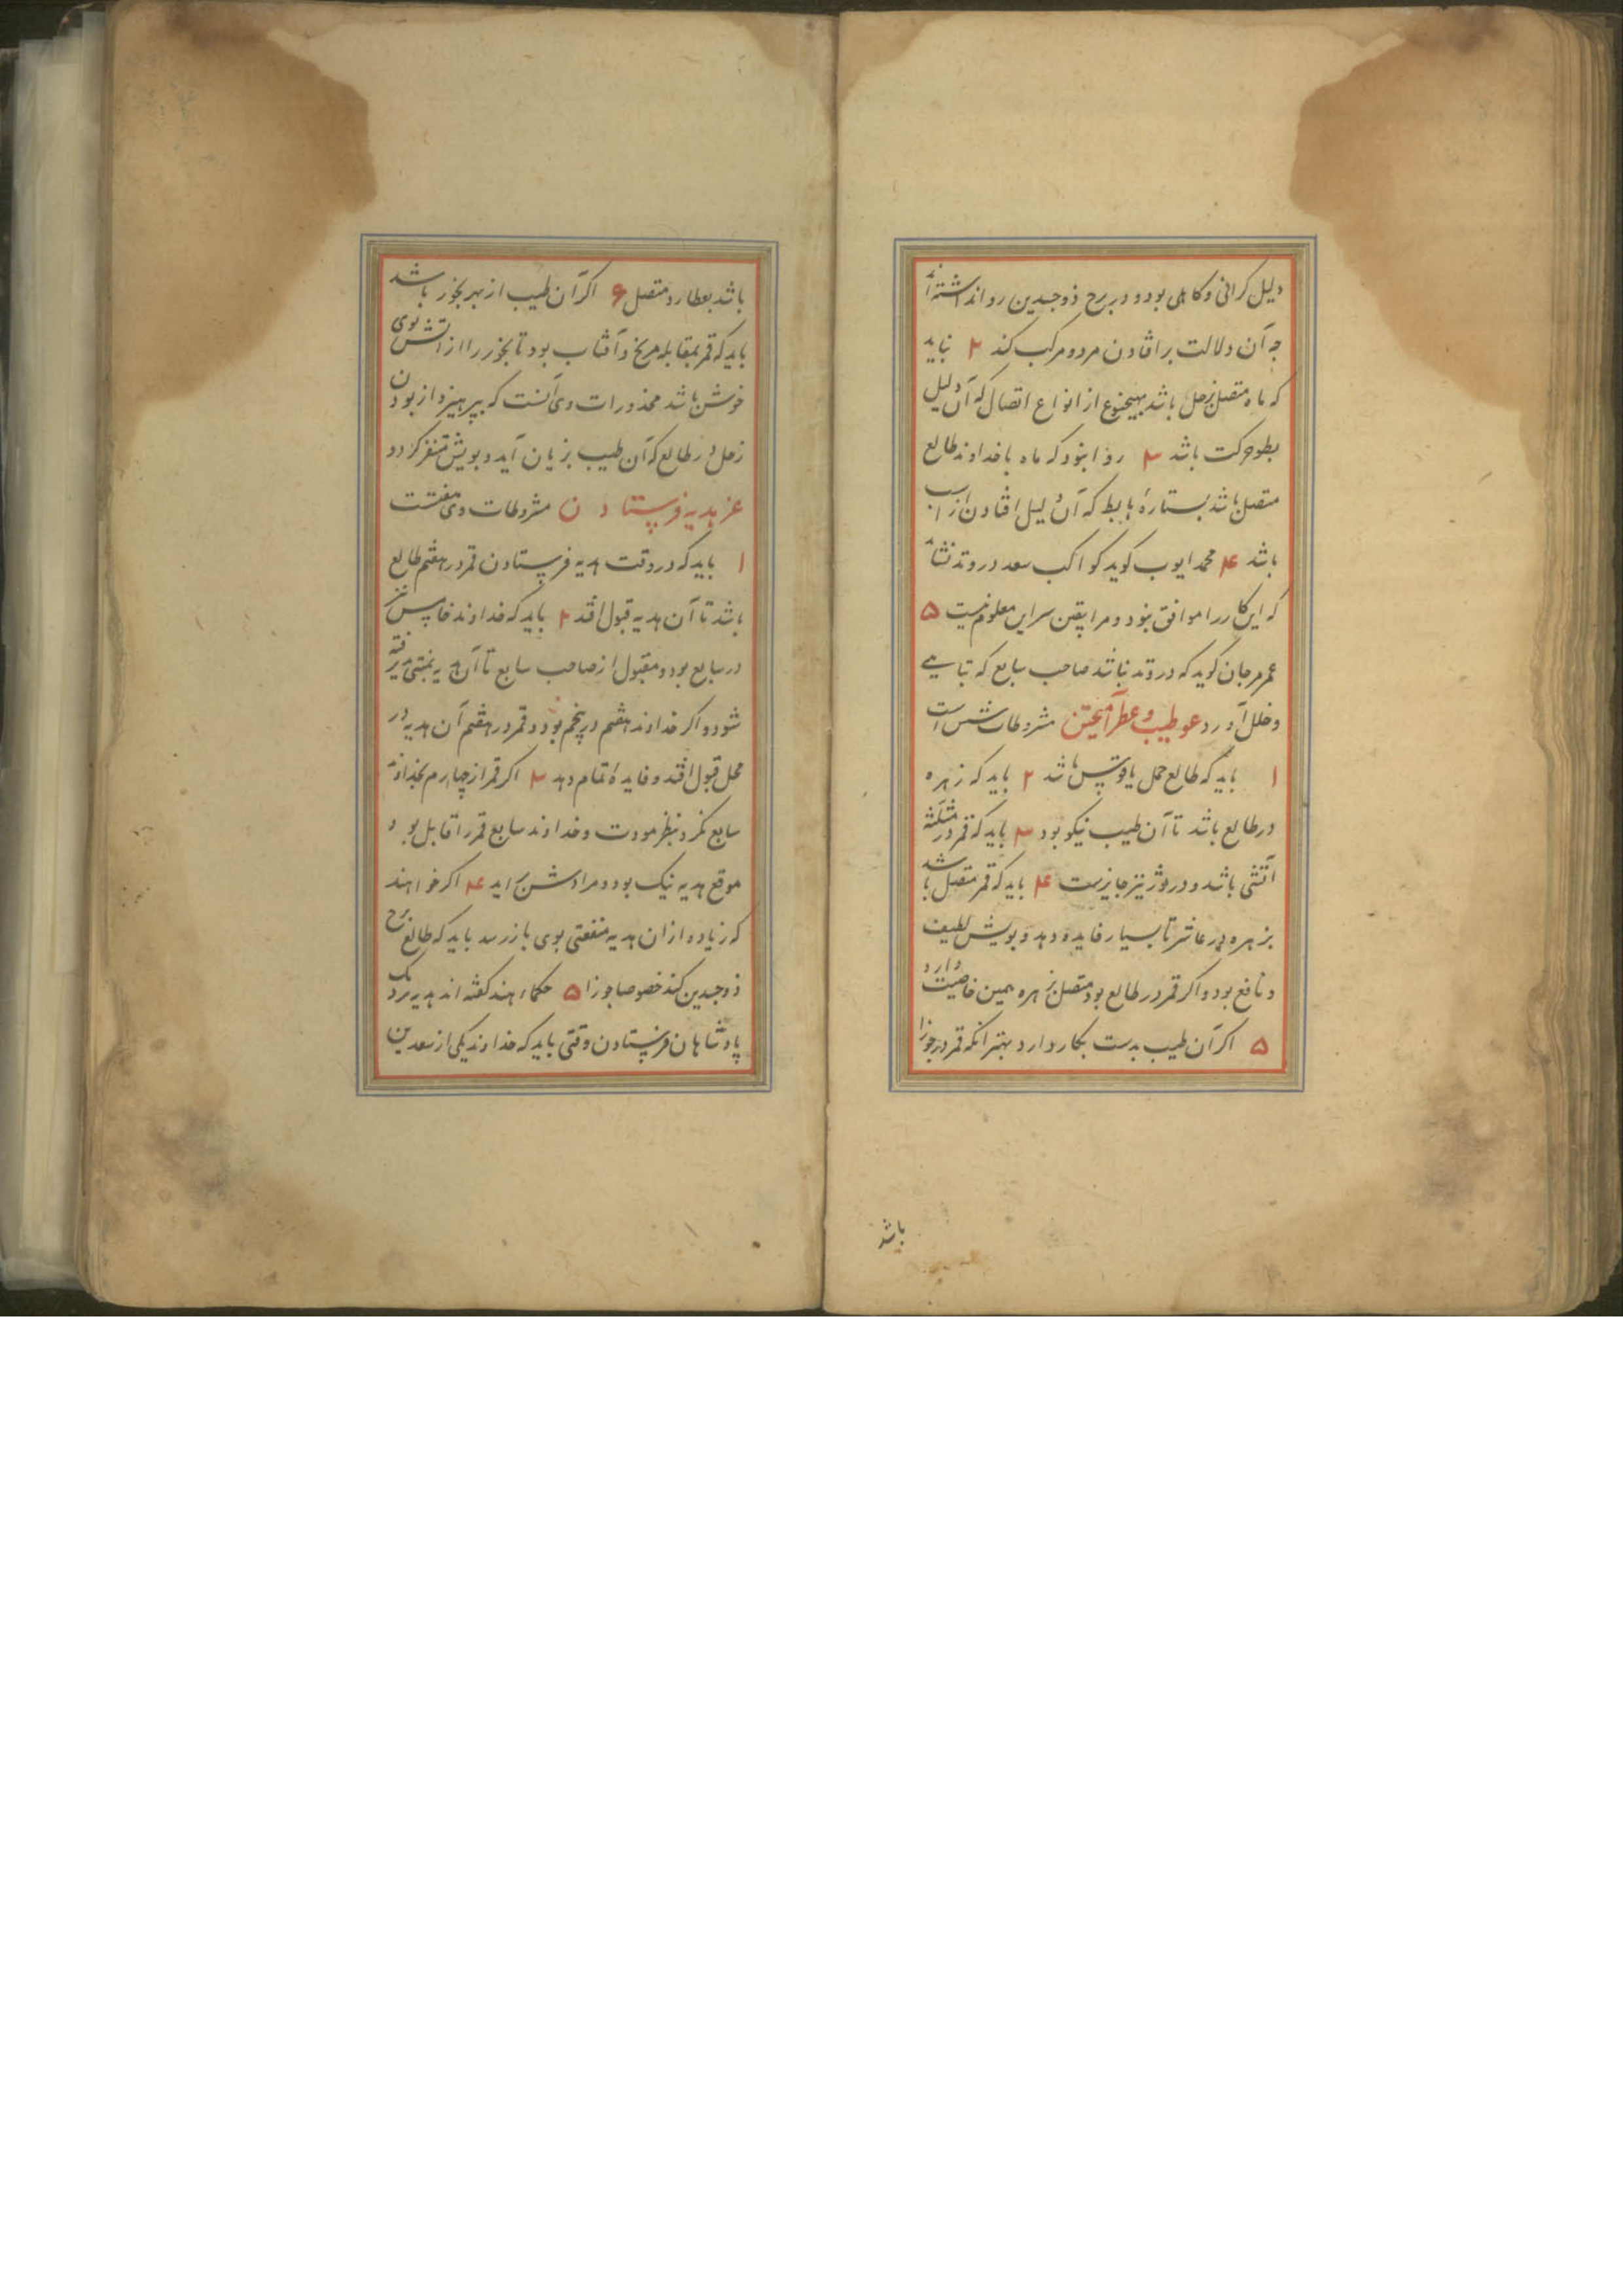 دلیل کرانی و کاهلی بود و در برج ذوجسدین روا نداشته‌اند
چه آن دلالت بر افتادن مرد و مرکب کند ۲ نباید
که ماه متصل بزحل باشد بهیچنوع از انواع اتصال که آن دلیل
بطوء حرکت باشد ۳ روا نبود که ماه با خداوند طالع
متصل باشد بستارهٔ هابط که آن دلیل افتادن از اسب
باشد ۴ محمد ایوب کوید کواکب سعد در وتد نشاید
که این کار را موافق نبود و مرا یقین سر این معلوم نیست ۵
عمر مرجان کوید که در وتد نباشد صاحب سابع که تباهی
و خلل آورد عو طیب و عطر آمیختن مشروطات شش است
۱ باید که طالع حمل یا قوس باشد ۲ باید که زهره
در طالع باشد تا آن طیب نیکو بود ۳ باید که قمر در مثلثه
آتشی باشد و در ثور نیز جایزست ۴ باید که قمر متصل باشد
بزهره در عاشر تا بسیار فایده دهد و بویش لطیف
و نافع بود و اکر قمر در طالع بود متصل بزهره همین خاصیت دارد
۵ اکر آن طیب بدست بکار دارد بهتر آنکه قمر در جوزا
باشد
باشد بعطارد متصل ۶ اکر آن طیب از بهر بخور باشد
باید که قمر بمقابله مریخ و آفتاب بود تا بخور را از آتش بوی
خوش باشد محذورات وی آنست که بپرهیزد از بودن
زحل در طالع که آن طیب بزیان آید و بویش متنفر کردد
عز هدیه فرستادن مشروطات وی هفتست
۱ باید که در وقت هدیه فرستادن قمر در هفتم طالع
باشد تا آن هدیه قبول افتد ۲ باید که خداوند خامس نیز
در سابع بود و مقبول از صاحب سابع تا آن هدیه بمنتی پذیرفته
شود و اکر خداوند هفتم در پنجم بود و قمر در هفتم آن هدیه در
محل قبول افتد و فایدهٔ تمام دهد ۳ اکر قمر از چهارم بخداوند
سابع نکرد بنظر مودت و خداوند سابع قمر را قابل بود
موقع هدیه نیک بود و مرادش برآید ۴ اکر خواهند
که زیاده از آن هدیه منفعتی بوی باز رسد باید که طالع برج
ذوجسدین کند خصوصا جوزا ۵ حکماء هند کفته‌اند هدیه نزدیک
پادشاهان فرستادن وقتی باید که خداوند یکی از سعدین